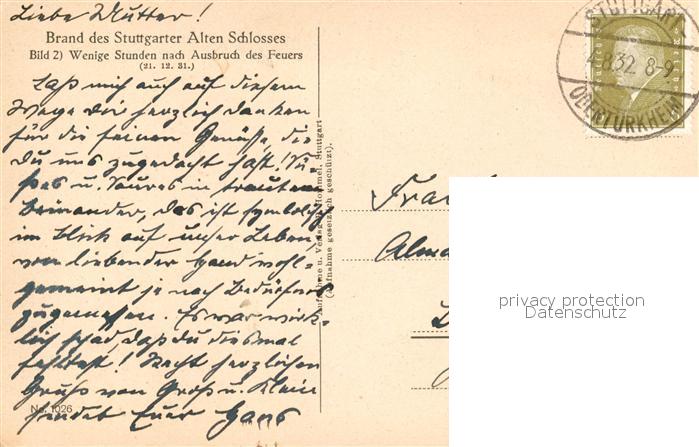 Liebe Mutter!
Brand des Stuttgarter Alten Schlosses
Bild 2) Wenige Stunden nach Ausbruch des Feuers
(21. 12. 31.)
Laß mich auch auf diesem
Wege dir herzlich danken
für die feinen Genüsse, die
Du uns zugedacht hast. Sü-
ßes u. Saures in trautem
Beinander, das ist symbolisch
im Blick auf unser Leben,
von liebender Hand wohl-
gemeint je nach Bedürfnis
zugemessen. Es war wirk-
lich schad, daß du diesmal
fehltest! Recht herzlichen
Gruß von Groß u. Klein
sendet Euer Hans
No. 1026
Aufnahme u. Verlag Hommel, Stuttgart
(Aufnahme gesetzlich geschützt).
STUTTGART
4.8.32. 8-9
OBERTÜRKHEIM
Frau
Alma
privacy protection
Datenschutz